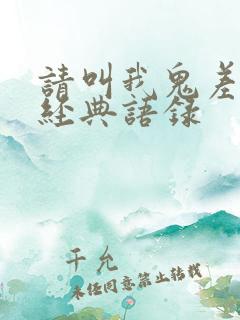 請叫我鬼差
經典語錄
千允
未經同意禁止轉載